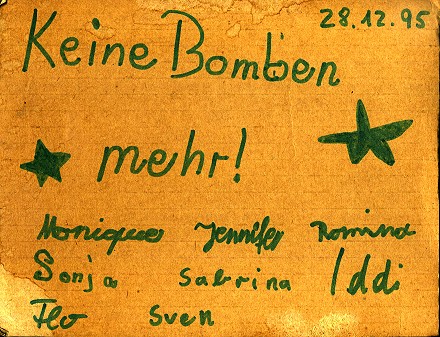 28.12.95
Keine Bomben
mehr!
Monique Jennifer Romina
Sonja Sabrina Iddi
Flo Sven